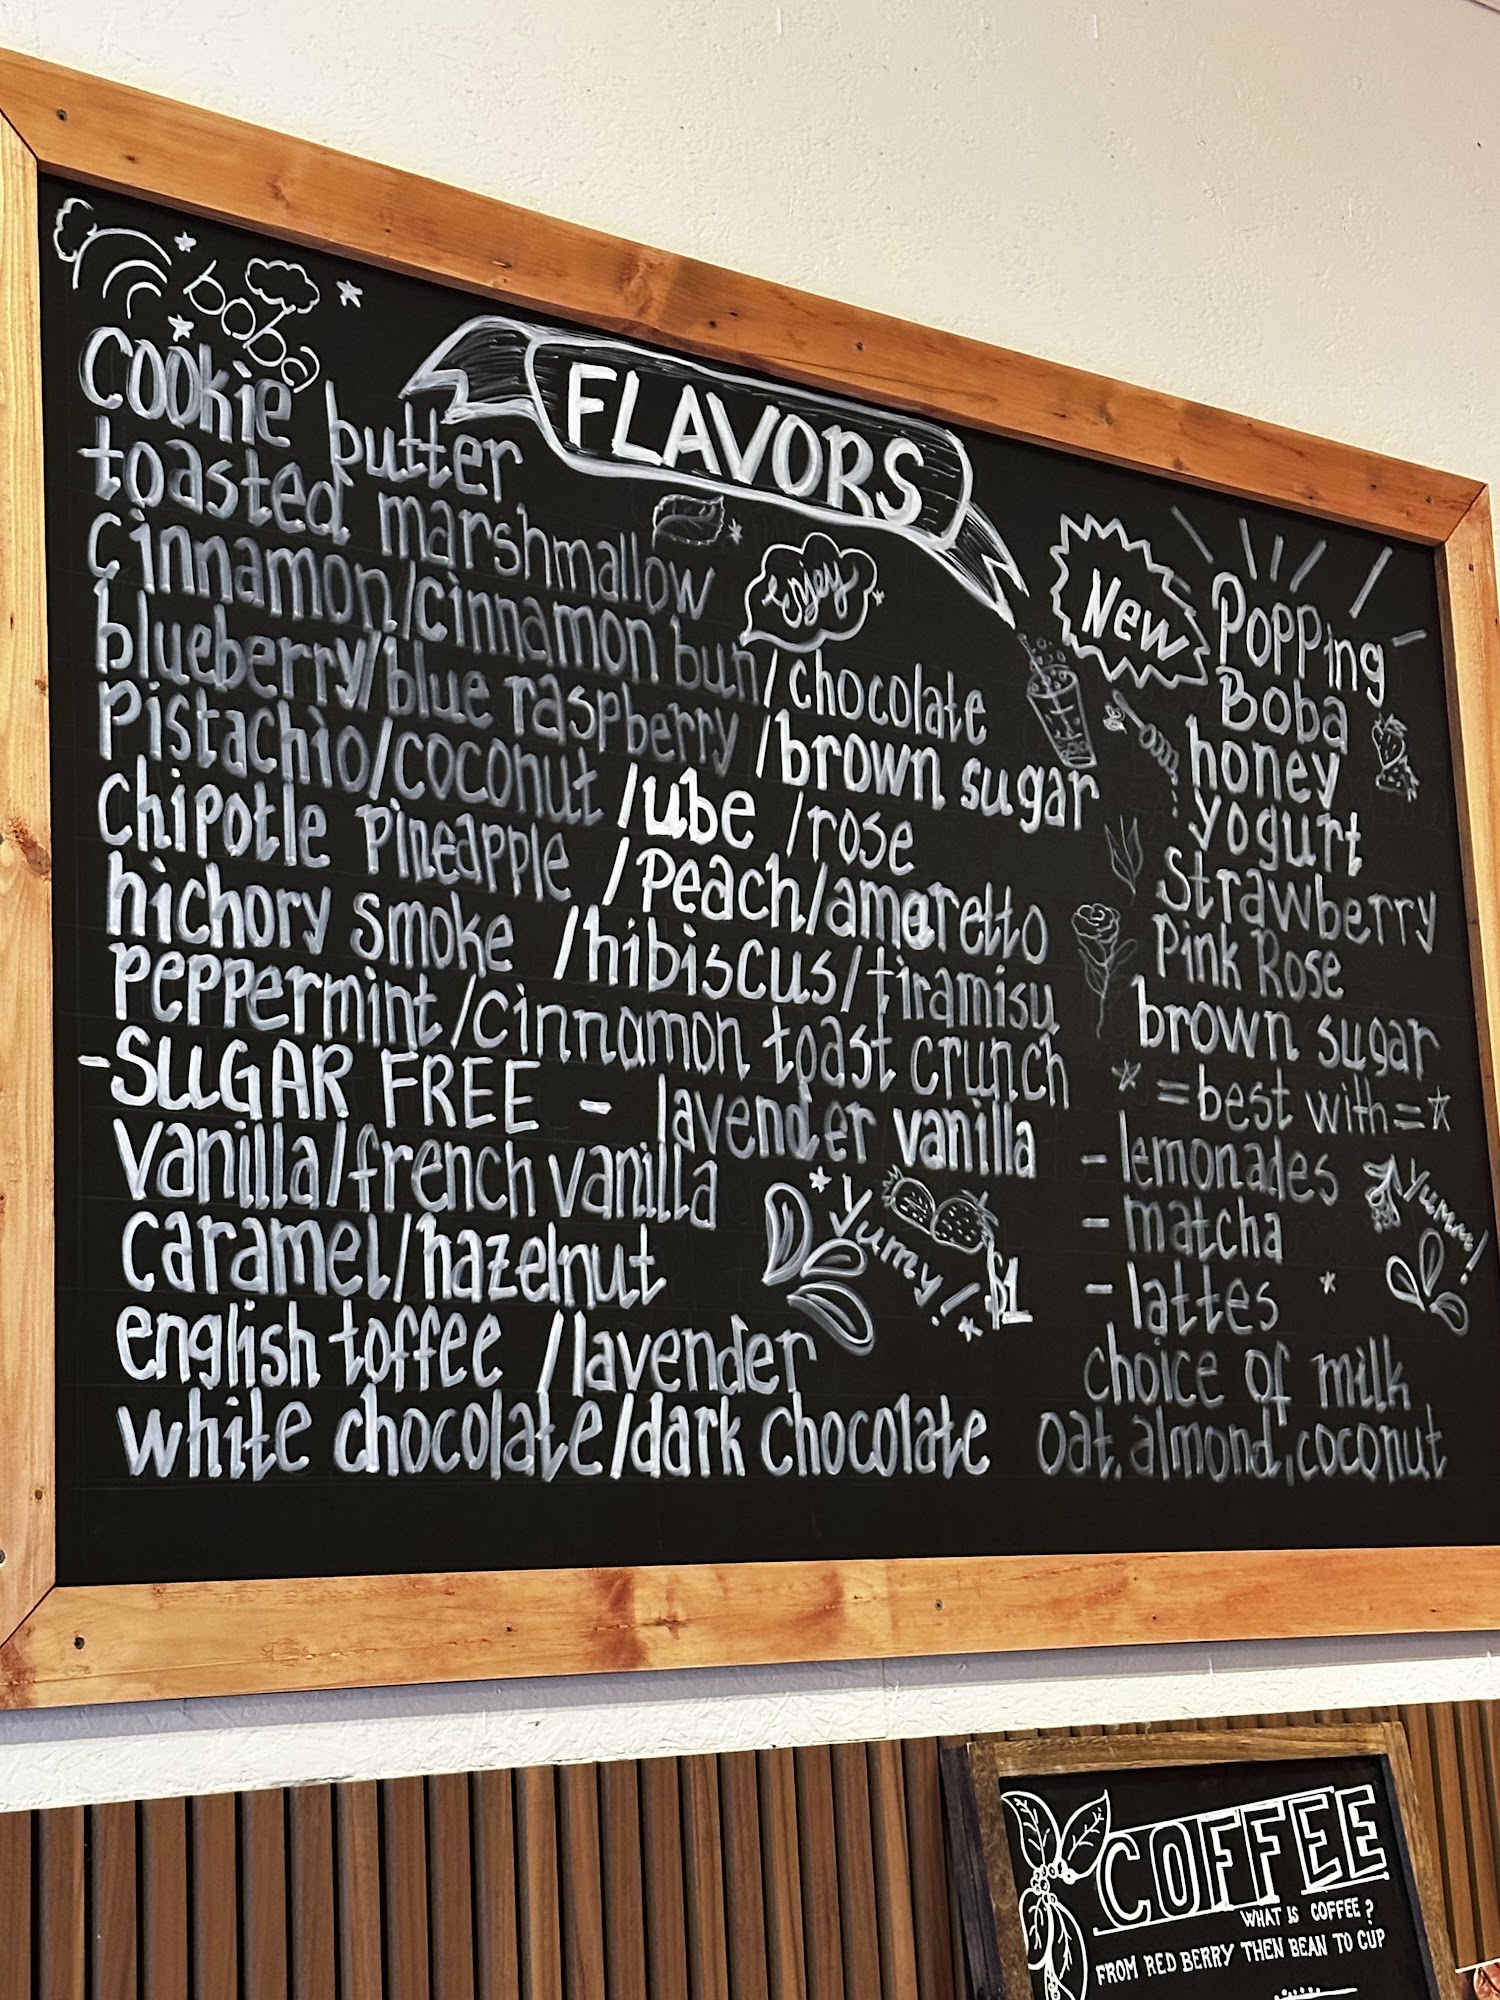 boba
FLAVORS
cookie butter
toasted marshmallow
enjoy
cinnamon/cinnamon bun/chocolate
blueberry/blue raspberry/brown sugar
pistachio/coconut/ube/rose
chipotle pineapple/peach/amaretto
hichory smoke/hibiscus/tiramisu
peppermint/cinnamon toast crunch
-SUGAR FREE - lavender vanilla
vanilla/french vanilla
caramel/hazelnut
Yummy! $1
english toffee/lavender
white chocolate/dark chocolate
New Popping
Boba
honey
yogurt
strawberry
Pink Rose
brown sugar
=best with=
- lemonades
- matcha
Yumm!
- lattes
choice of milk
oat, almond, coconut
COFFEE
WHAT IS COFFEE?
FROM RED BERRY THEN BEAN TO CUP